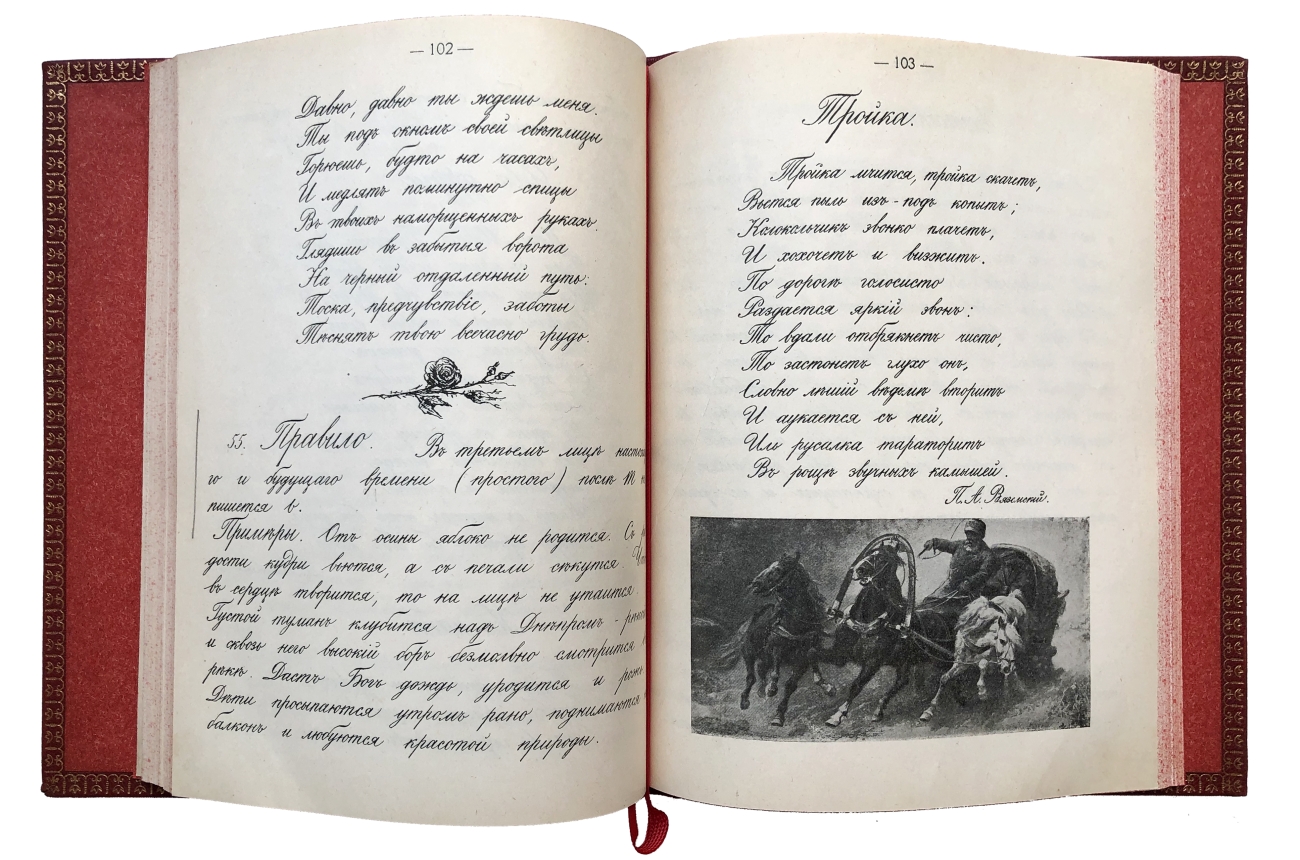 — 102 —
Давно, давно ты ждешь меня.
Ты подъ окномъ своей свѣтлицы
Горюешь, будто на часахъ,
И медлятъ поминутно спицы
Въ твоихъ наморщенныхъ рукахъ.
Глядишь въ забытыя ворота
На черный отдаленный путь:
Тоска, предчувствіе, заботы
Тѣснятъ твою всечасно грудь.
55. Правило. Въ третьемъ лицѣ
го и будущаго времени (простого) послѣ т
пишется ь.
Примѣры. Отъ осины яблоко не родится. Съ
дости кудри вьются, а съ печали сѣкутся.
въ сердцѣ творится, то на лицѣ не утаится
Густой туманъ клубится надъ Днѣпромъ-
и сквозь него высокій боръ безмолвно смотрится
рѣкѣ. Дастъ Богъ дождь, уродится и рожь
Дѣти просыпаются утромъ рано, поднимаются
балконъ и любуются красотой природы.
— 103 —
Тройка.
Тройка мчится, тройка скачетъ,
Вьется пыль изъ-подъ копытъ;
Колокольчикъ звонко плачетъ,
И хохочетъ и визжитъ.
По дорогѣ голосисто
Раздается яркій звонъ:
То вдали отбрякнетъ чисто,
То застонетъ глухо онъ,
Словно лѣшій вѣдьмѣ вторитъ
И аукается съ ней,
Иль русалка тараторитъ
Въ рощѣ звучныхъ камышей.
П. А. Вяземскій.